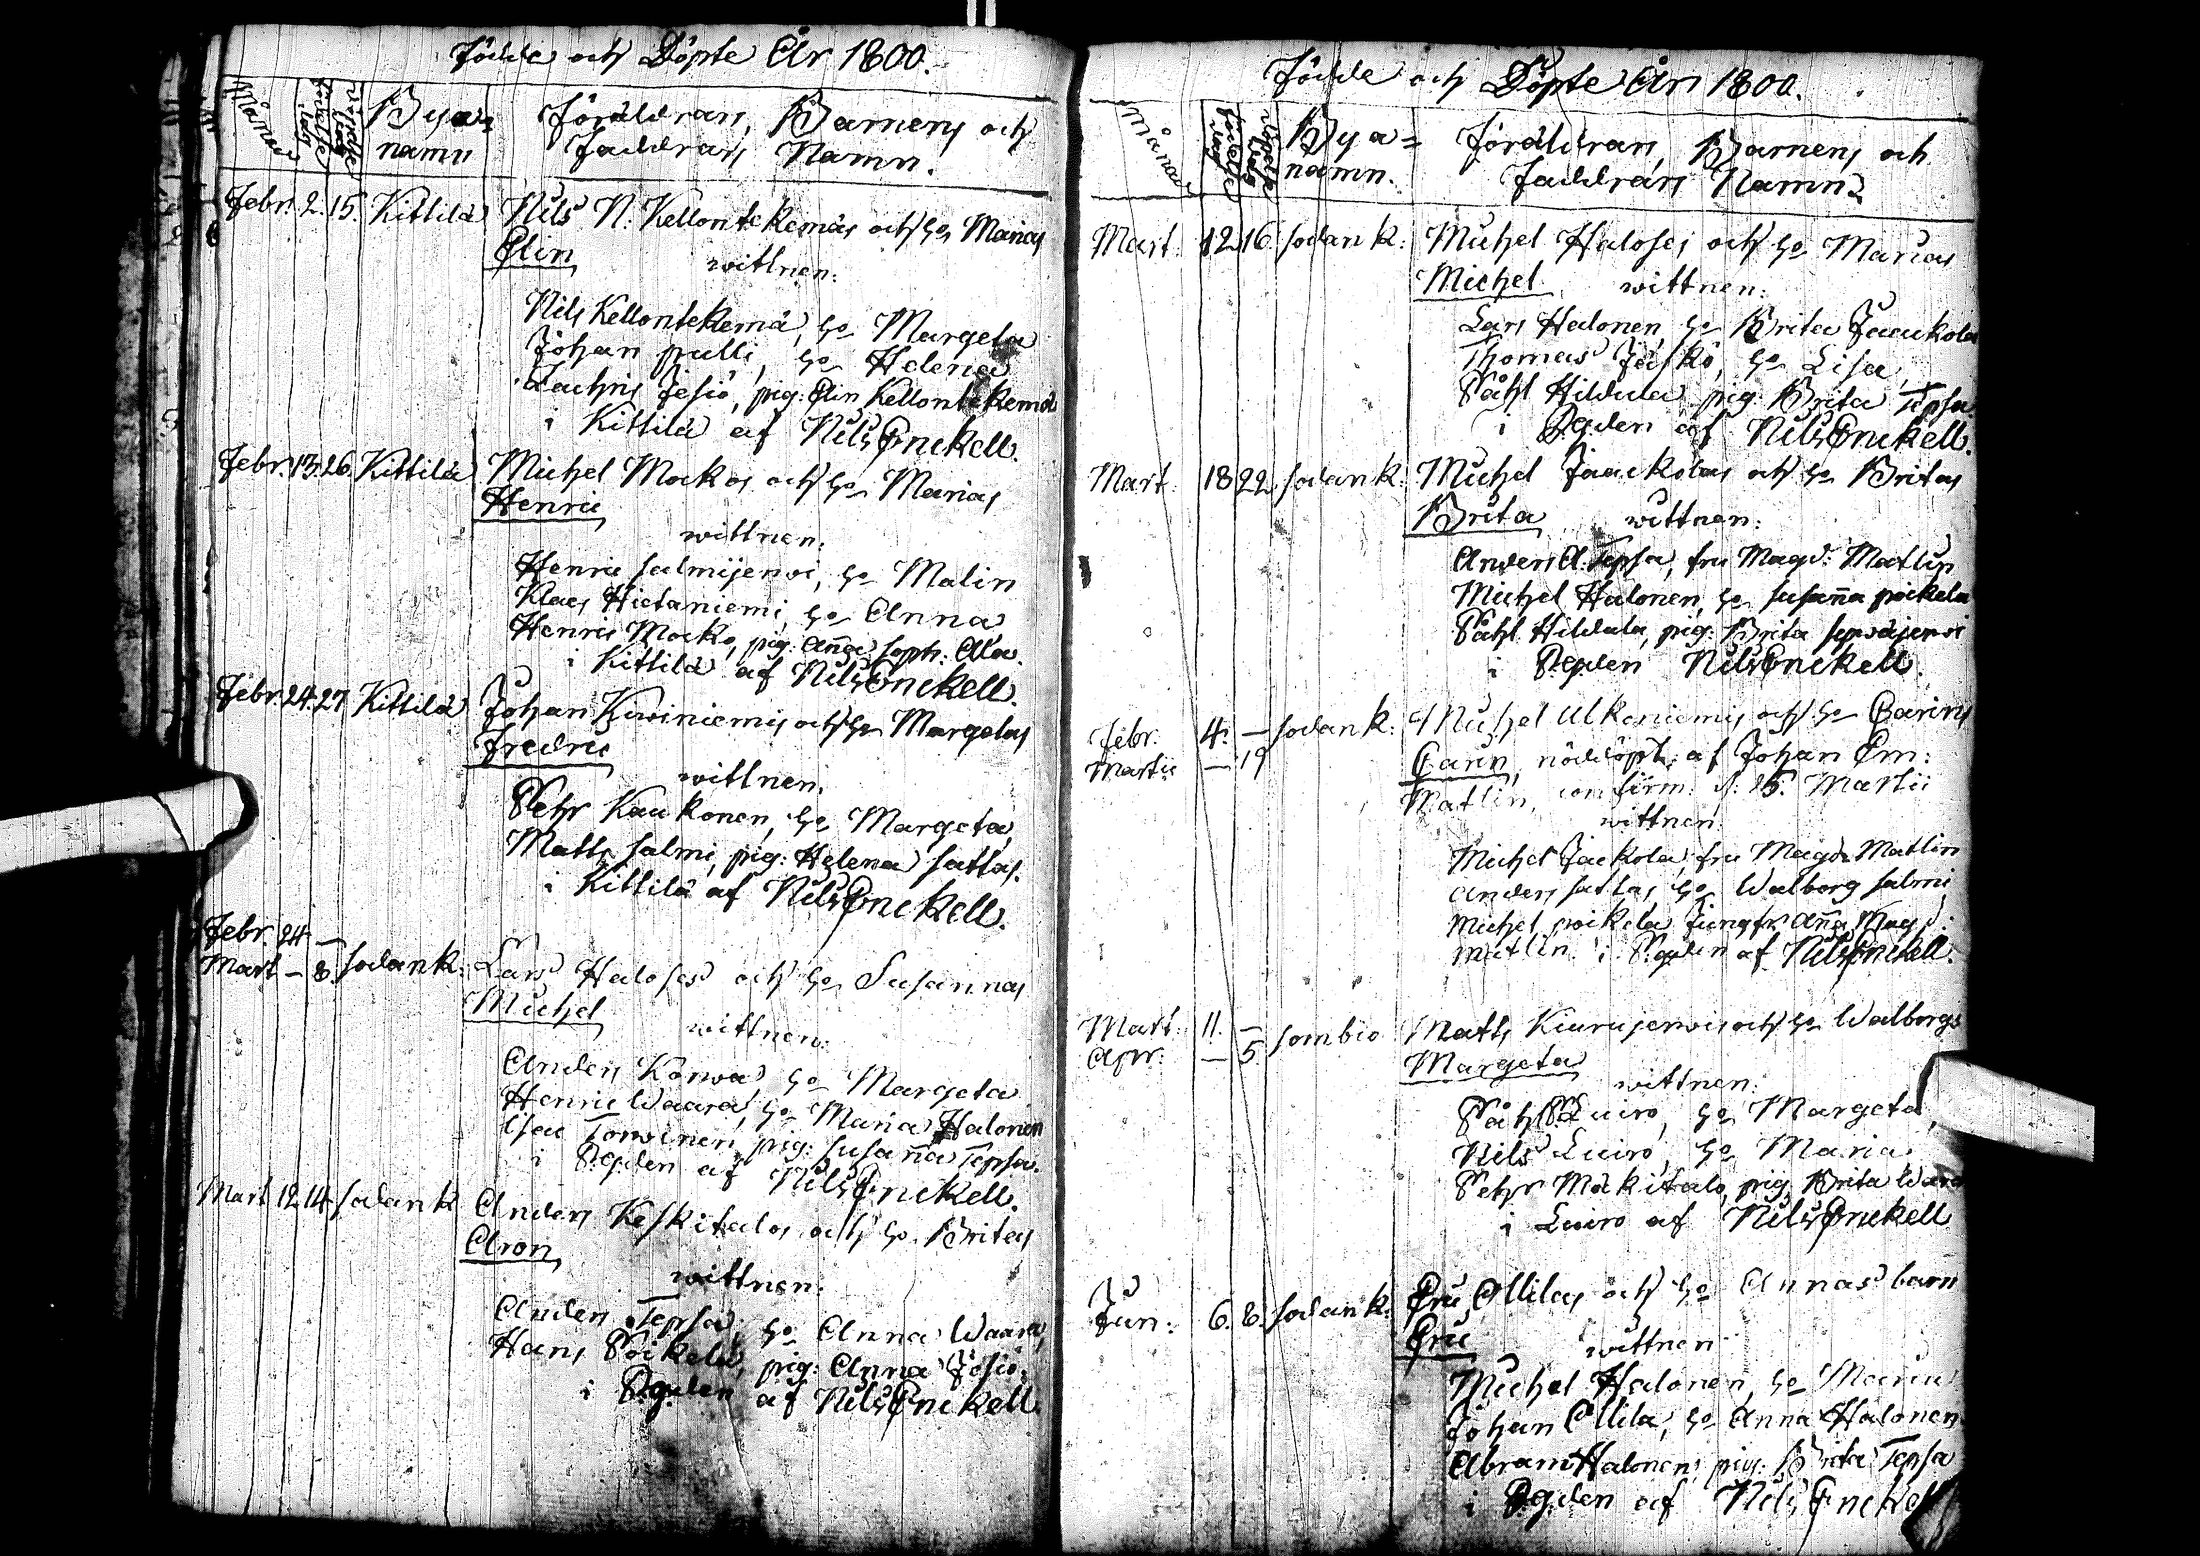 Födde och Döpte År 1800.
Månad
födelse dag
döpelse dag
Bya-
namn
Föräldrars, Barnens och
Faddrars Namn.
Febr. 2. 15. Kittilä Nils N. Kellontekemäs och ho Marias
Elin
wittnen:
Nils Kellontekemä, ho Margeta
Johan pulli, ho Helena
Zachris Jesiö, pig: Elin Kellontekemä
i Kittilä af Nils Enckell.
Febr. 13. 26. Kittilä Michel Mockos och ho Marias
Henric
wittnen:
Henric salmijerwi, ho Malin
Klaes Hietaniemi, ho Anna
Henric Mocko, pig: Aña soph: Ala.
i Kittilä af Nils Enckell.
Febr. 24. 27 Kittilä Johan Kiwiniemis och ho Margetas
Fredric
wittnen.
Pehr Kaukonen, ho Margeta,
Matts salmi, pig: Helena sattas.
i Kittilä af Nils Enckell.
Febr. 24 —
Mart — 8. sodank: Lars Haloses och ho Susannas
Michel
wittnen:
Anders Korwa, ho Margeta
Henric Waara, ho Maria Halonen
Isac Torwinen, pig: susaña Tepsa.
i Pgden af Nils Enckell.
Mart 12. 14. sodank Anders Keskitalos och ho Britas
Aron
wittnen:
Anders Tepsa, ho Anna Waara,
Hans Poikela, pig: Anna Jesiö.
i Pgden af Nils Enckell.
Födde och Döpte År 1800.
Månad
födelse dag
döpelse dag
Bya-
namn.
Föräldrars, Barnens och
Faddrars Namn
Mart. 12 16. sodank: Michel Haloses och ho Marias
Michel wittnen:
Lars Halonen, ho Brita Jaakola
Thomas Jäskö, ho Lisa,
Påhl Hildula pig: Brita Tepsa
i Pgden af Nils Enckell.
Mart. 18 22. sodank: Michel Jaackolas och ho Britas
Brita wittnen:
Anders A. Tepsa, fru Magd: Matlin
Michel Halonen, ho susaña poikela
Påhl Hildula, pig: Brita seprdjerwi
i Pgden Nils Enckell.
Febr. 4. — sodank: Michel Alkoniemis och ho Carins
Martii — 19 Carin, nöddöpt: af Johan Em:
Matlin, confirm: d: 15. Martii
wittnen
Michel Jackola, fru Magd: Matlin
Anders sattas, ho Walborg salmi
Michel poikela Jungfr Aña Magd:
Matlin. i Pgden af Nils Enckell.
Mart. 11. — sombio Matts Kiurujerwis och ho Walborgs
Apr: — 5. Margeta
wittnen:
Påhl P. Luiro, ho Margeta,
Nils Luiro, ho Maria
Pehr Mäkitalo, pig. Brita Wara
i Luiro af Nils Enckell
Jun: 6. 8. sodank: Eric Ollilas och ho Annas barn
Eric
wittnen
Michel Halonen, ho Maria
Johan Ollila, ho Anna Halonen
Abram Halonen, pig: Brita Tepsa
i Pgden af Nils Enckell